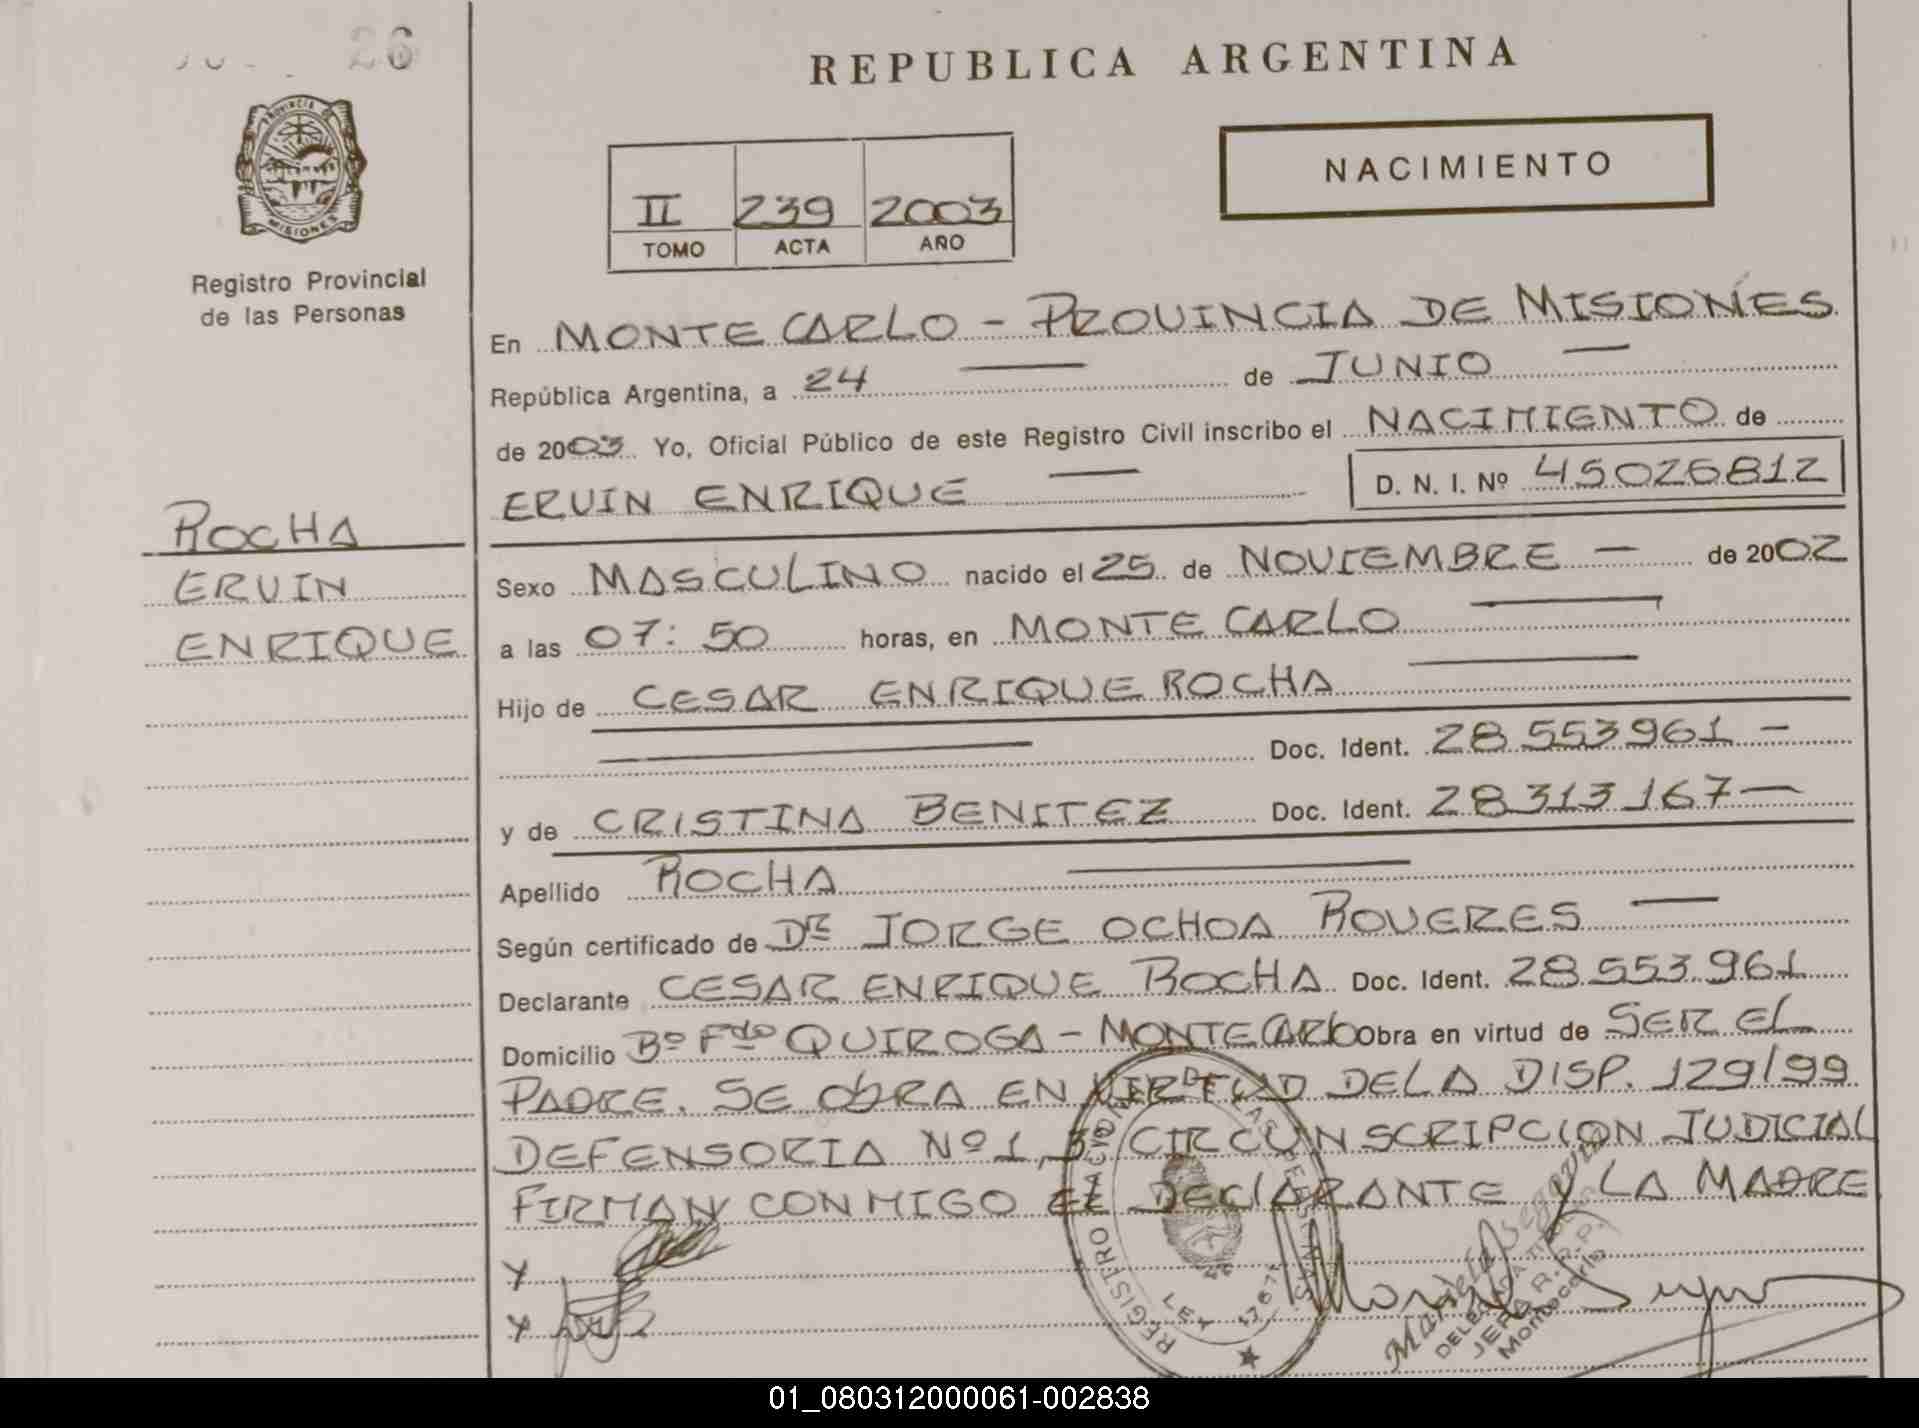 26
REPUBLICA ARGENTINA
PROVINCIA DE
MISIONES
NACIMIENTO
II 239 2003
TOMO ACTA AÑO
Registro Provincial
de las Personas
En MONTECARLO - PROVINCIA DE MISIONES
República Argentina, a 24 de JUNIO
de 2003 Yo, Oficial Público de este Registro Civil inscribo el NACIMIENTO de
ERVIN ENRIQUE D. N. I. Nº 45026812
ROCHA
ERVIN
ENRIQUE
Sexo MASCULINO nacido el 25 de NOVIEMBRE - de 2002
a las 07:50 horas, en MONTECARLO
Hijo de CESAR ENRIQUE ROCHA
Doc. Ident. 28.553961 -
y de CRISTINA BENITEZ Doc. Ident. 28.313.167 -
Apellido ROCHA
Según certificado de DR JORGE OCHOA ROVERES
Declarante CESAR ENRIQUE ROCHA Doc. Ident. 28.553.961
Domicilio Bº Fdo QUIROGA - MONTECARLO Obra en virtud de SER EL
PADRE. SE ObRA EN VIRTUD DE LA DISP. 129/99
DEFENSORIA Nº 1, 3 CIRCUNSCRIPCION JUDICIAL
FIRMAN CONMIGO EL DECLARANTE Y LA MADRE
REGISTRO NACIONAL DE LAS PERSONAS
LEY 17671
DELEGADA TITULAR
R.P.P.
Montecarlo
01_080312000061-002838